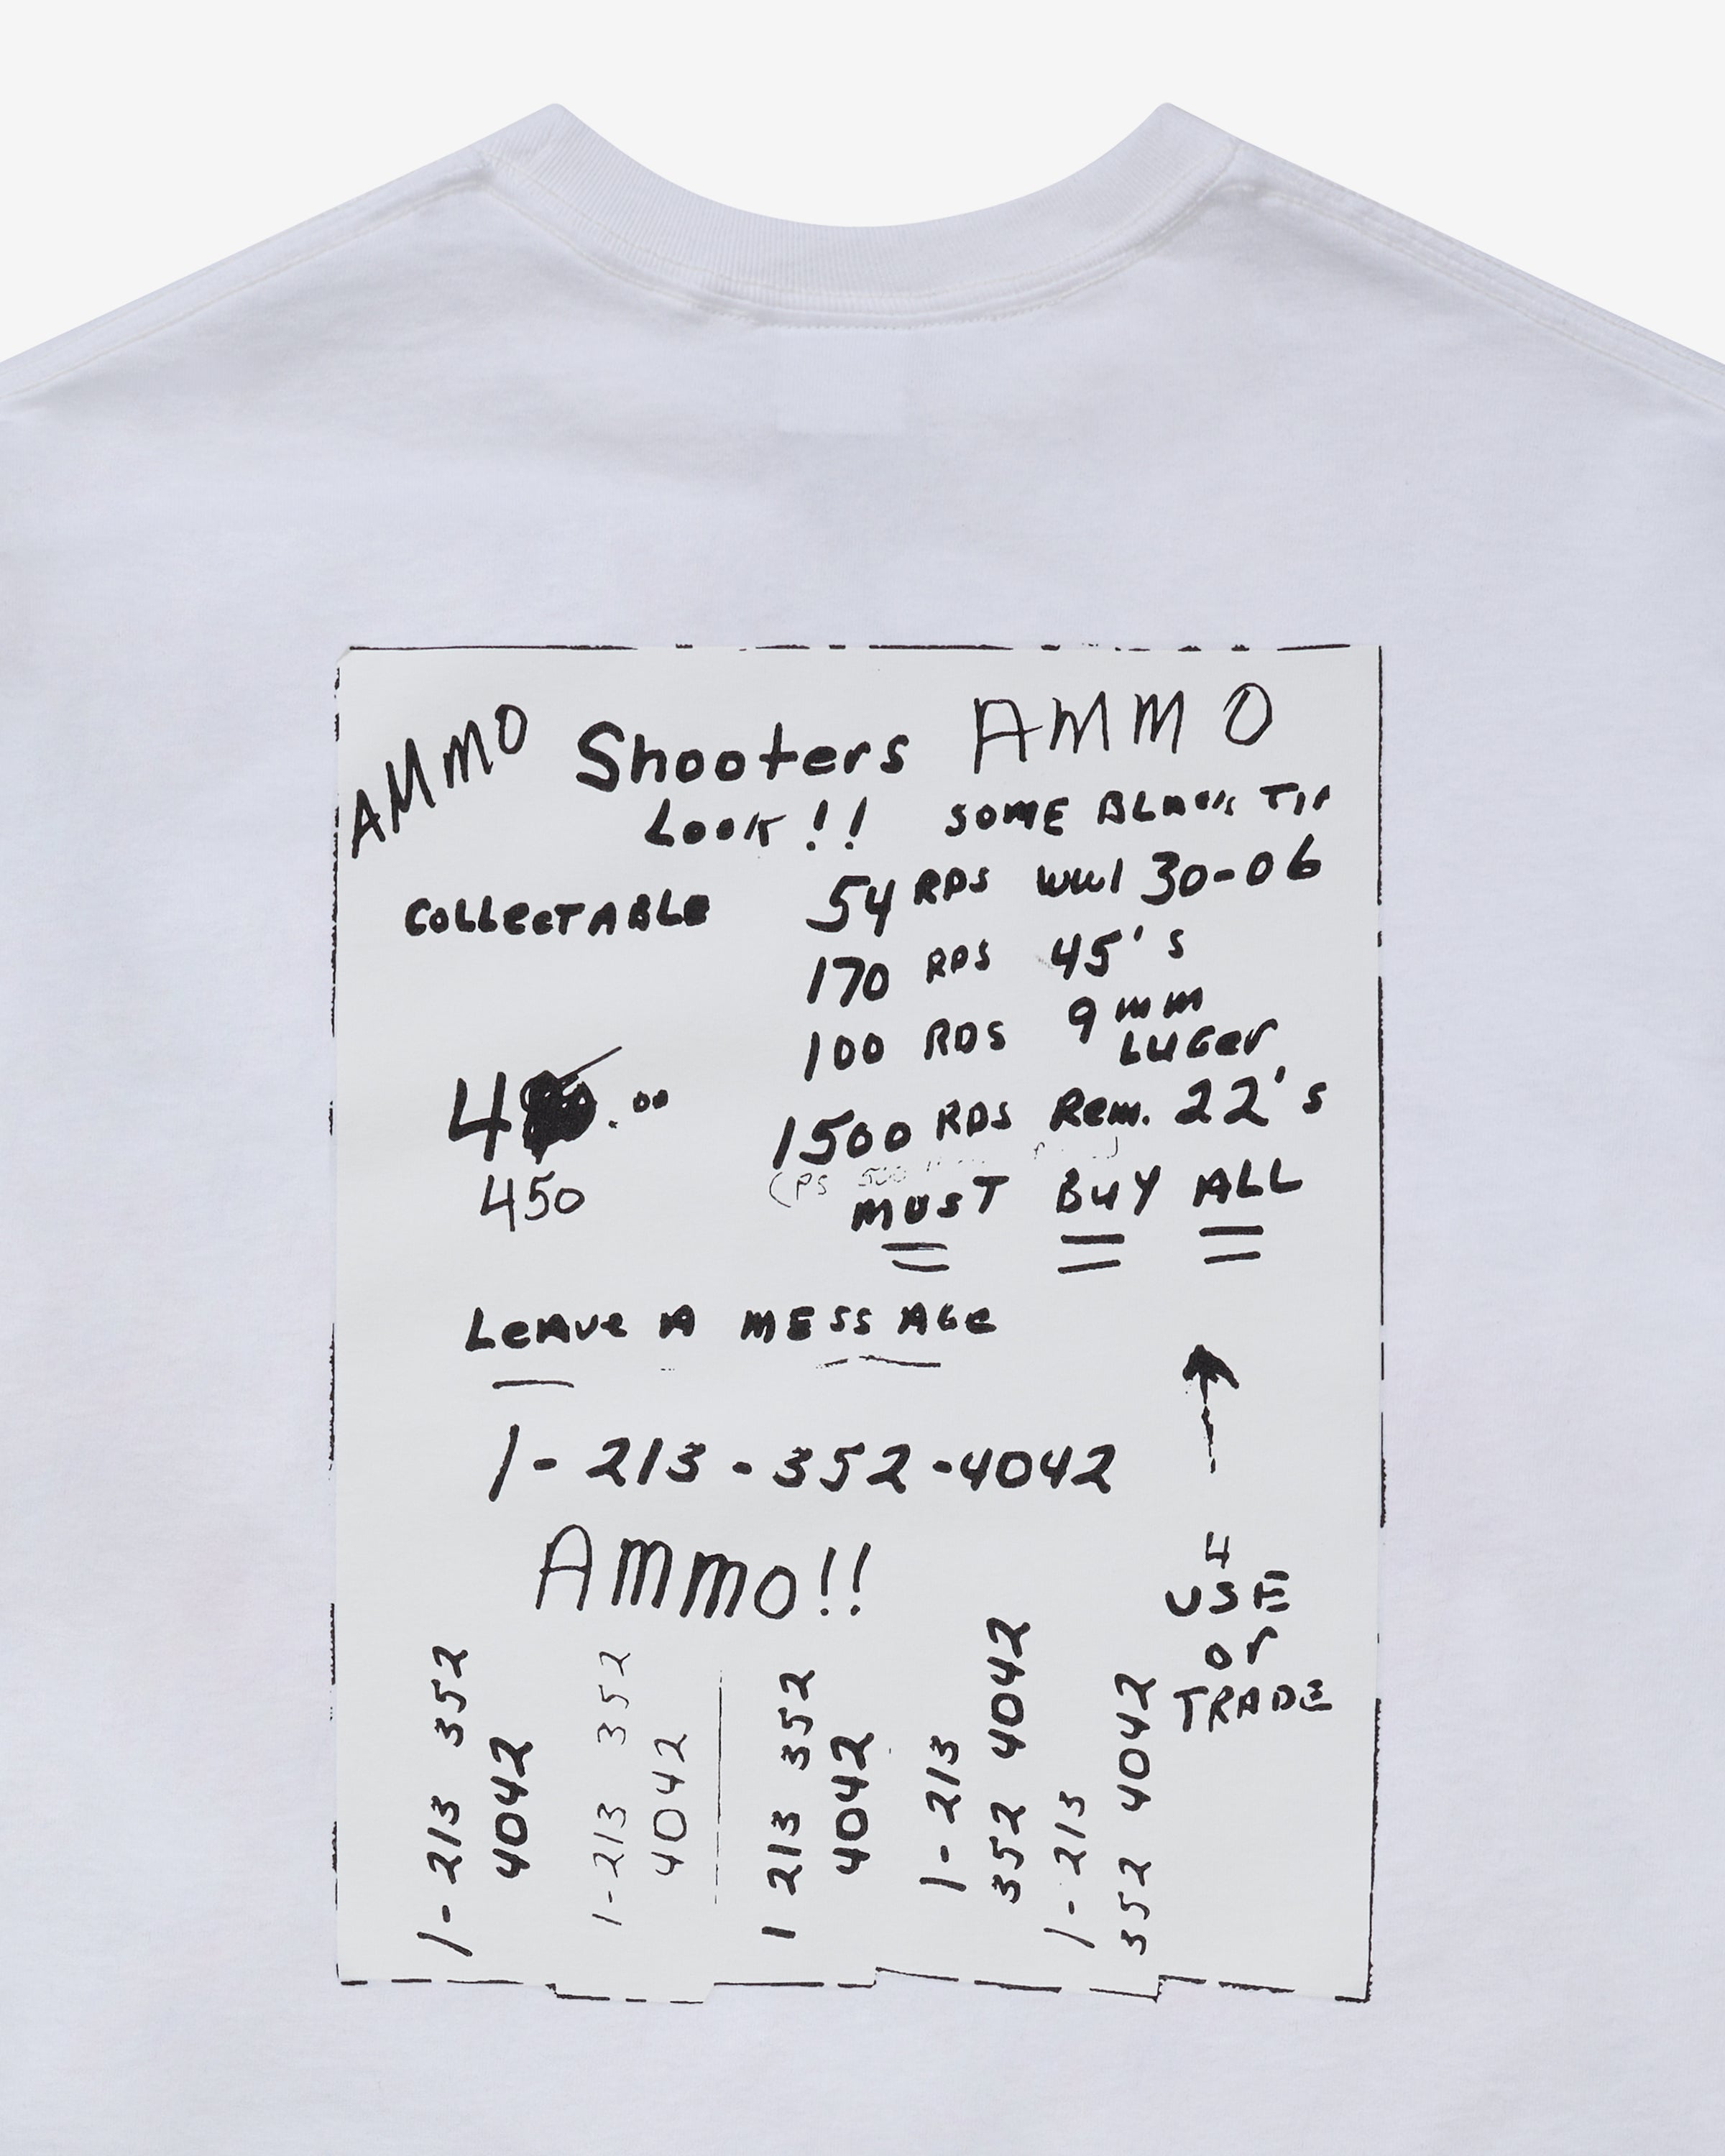 AMMO Shooters AMMO
Look!! SOME BLACK TIP
COLLECTABLE 54 RDS WWI 30-06
170 RDS 45's
100 RDS 9mm
LUGer
4 .00 1500 RDS Rem. 22's
(PS 500
450 MUST BUY ALL
LeAve A MESSAGe
1-213-352-4042
AMMO!!
4
USE
or
TRADE
1-213 352
4042
1-213 352
4042
1 213 352
4042
1-213
352 4042
1-213
352 4042